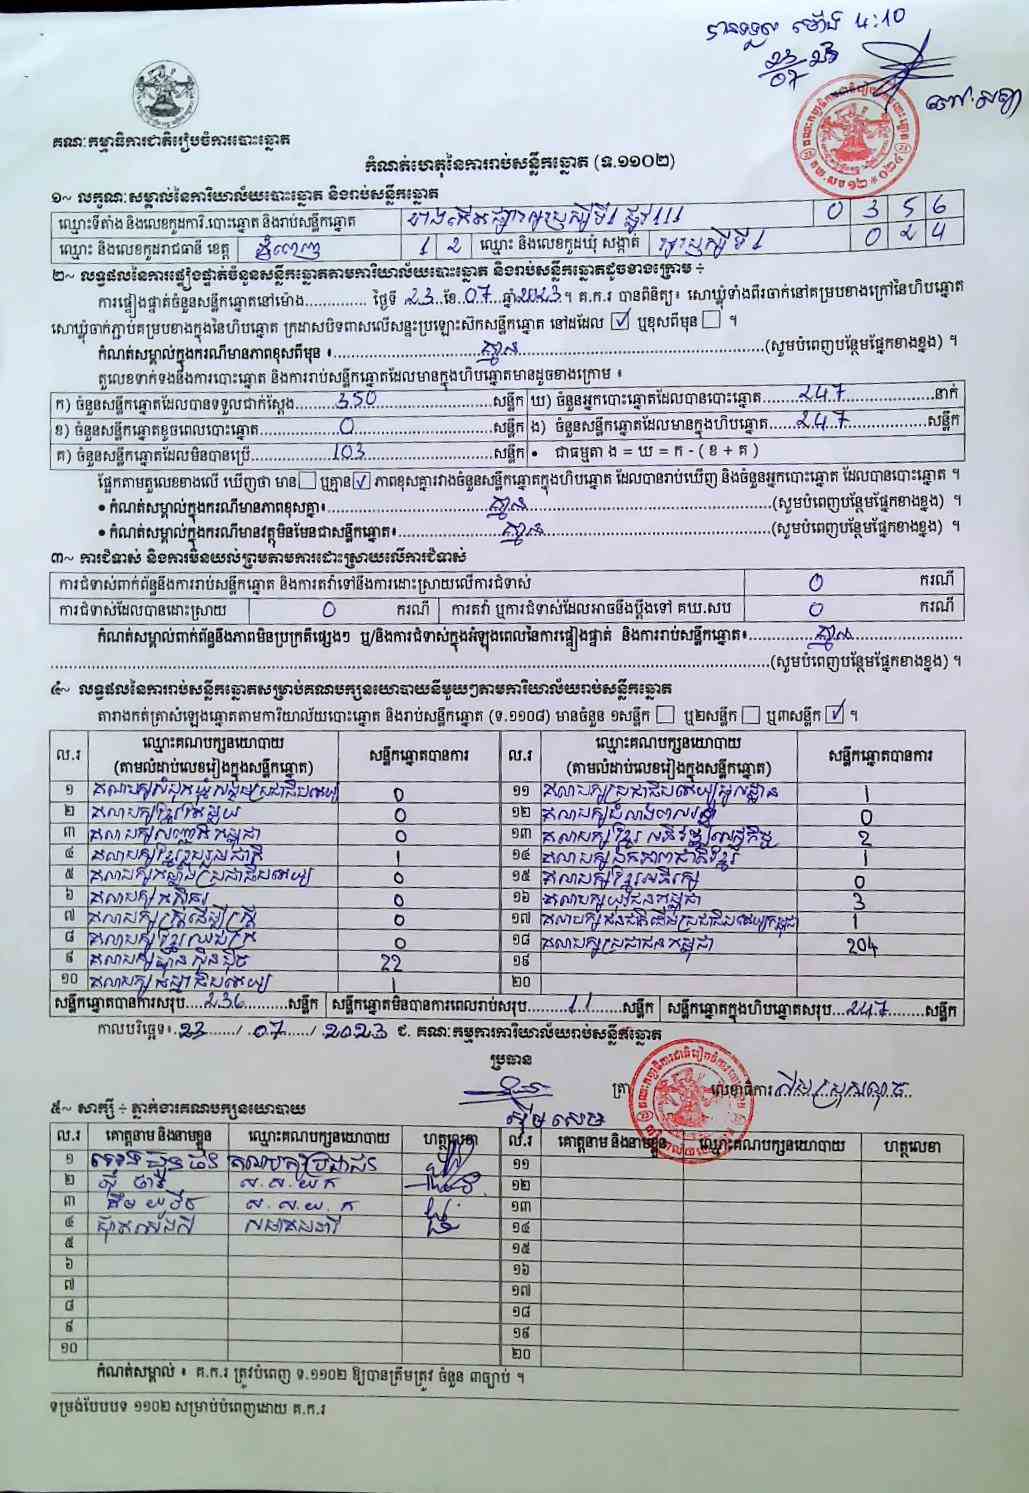 បានទទួល ម៉ោង 4:10
23/07 23
គណៈកម្មាធិការជាតិរៀបចំការបោះឆ្នោត
កំណត់ហេតុនៃការរាប់សន្លឹកឆ្នោត (ទ.១១០២)
១~ លក្ខណៈសម្គាល់នៃការិយាល័យបោះឆ្នោត និងរាប់សន្លឹកឆ្នោត
ឈ្មោះទីតាំង និងលេខកូដការិ.បោះឆ្នោត និងរាប់សន្លឹកឆ្នោត 0 3 5 6
ឈ្មោះ និងលេខកូដរាជធានី ខេត្ត ភ្នំពេញ 1 2 ឈ្មោះ និងលេខកូដឃុំ សង្កាត់ អូរឫស្សីទី1 0 2 4
២~ លទ្ធផលនៃការផ្ទៀងផ្ទាត់ចំនួនសន្លឹកឆ្នោតតាមការិយាល័យបោះឆ្នោត និងរាប់សន្លឹកឆ្នោតដូចខាងក្រោម ÷
ការផ្ទៀងផ្ទាត់ចំនួនសន្លឹកឆ្នោតនៅម៉ោង.............. ថ្ងៃទី 23 ខែ 07 ឆ្នាំ 2023 ។ គ.ក.រ បានពិនិត្យ៖ សោឃ្លុំទាំងពីរចាក់នៅគម្របខាងក្រៅនៃហិបឆ្នោត
សោឃ្លុំចាក់ភ្ជាប់គម្របខាងក្នុងនៃហិបឆ្នោត ក្រដាសបិទពាសលើសន្ទះប្រឡោះស៊កសន្លឹកឆ្នោត នៅដដែល ☑ ឬខុសពីមុន ☐ ។
កំណត់សម្គាល់ក្នុងករណីមានភាពខុសពីមុន ៖ គ្មាន (សូមបំពេញបន្ថែមផ្នែកខាងខ្នង) ។
តួលេខទាក់ទងនឹងការបោះឆ្នោត និងការរាប់សន្លឹកឆ្នោតដែលមានក្នុងហិបឆ្នោតមានដូចខាងក្រោម ៖
ក) ចំនួនសន្លឹកឆ្នោតដែលបានទទួលជាក់ស្តែង 350 សន្លឹក ឃ) ចំនួនអ្នកបោះឆ្នោតដែលបានបោះឆ្នោត 247 នាក់
ខ) ចំនួនសន្លឹកឆ្នោតខូចពេលបោះឆ្នោត 0 សន្លឹក ង) ចំនួនសន្លឹកឆ្នោតដែលមានក្នុងហិបឆ្នោត 247 សន្លឹក
គ) ចំនួនសន្លឹកឆ្នោតដែលមិនបានប្រើ 103 សន្លឹក • ជាធម្មតា ង = ឃ = ក - ( ខ + គ )
ផ្អែកតាមតួលេខខាងលើ ឃើញថា មាន ☐ ឬគ្មាន ☑ ភាពខុសគ្នារវាងចំនួនសន្លឹកឆ្នោតក្នុងហិបឆ្នោត ដែលបានរាប់ឃើញ និងចំនួនអ្នកបោះឆ្នោត ដែលបានបោះឆ្នោត ។
• កំណត់សម្គាល់ក្នុងករណីមានភាពខុសគ្នា៖ គ្មាន (សូមបំពេញបន្ថែមផ្នែកខាងខ្នង) ។
• កំណត់សម្គាល់ក្នុងករណីមានវត្ថុមិនមែនជាសន្លឹកឆ្នោត៖ គ្មាន (សូមបំពេញបន្ថែមផ្នែកខាងខ្នង) ។
៣~ ការជំទាស់ និងការមិនយល់ព្រមតាមការដោះស្រាយលើការជំទាស់
ការជំទាស់ពាក់ព័ន្ធនឹងការរាប់សន្លឹកឆ្នោត និងការតវ៉ាទៅនឹងការដោះស្រាយលើការជំទាស់ 0 ករណី
ការជំទាស់ដែលបានដោះស្រាយ 0 ករណី ការតវ៉ា ឬការជំទាស់ដែលអាចនឹងប្តឹងទៅ គឃ.សប 0 ករណី
កំណត់សម្គាល់ពាក់ព័ន្ធនឹងភាពមិនប្រក្រតីផ្សេងៗ ឬ/និងការជំទាស់ក្នុងអំឡុងពេលនៃការផ្ទៀងផ្ទាត់ និងការរាប់សន្លឹកឆ្នោត៖ គ្មាន
(សូមបំពេញបន្ថែមផ្នែកខាងខ្នង) ។
៤~ លទ្ធផលនៃការរាប់សន្លឹកឆ្នោតសម្រាប់គណបក្សនយោបាយនីមួយៗតាមការិយាល័យរាប់សន្លឹកឆ្នោត
តារាងកត់ត្រាសំឡេងឆ្នោតតាមការិយាល័យបោះឆ្នោត និងរាប់សន្លឹកឆ្នោត (ទ.១១០៨) មានចំនួន ១សន្លឹក ☐ ឬ២សន្លឹក ☐ ឬ៣សន្លឹក ☑ ។
ល.រ ឈ្មោះគណបក្សនយោបាយ (តាមលំដាប់លេខរៀងក្នុងសន្លឹកឆ្នោត) សន្លឹកឆ្នោតបានការ ល.រ ឈ្មោះគណបក្សនយោបាយ (តាមលំដាប់លេខរៀងក្នុងសន្លឹកឆ្នោត) សន្លឹកឆ្នោតបានការ
១ គណបក្សសំបុកឃ្មុំសង្គមប្រជាធិបតេយ្យ 0 ១១ គណបក្សប្រជាធិបតេយ្យមូលដ្ឋាន 1
២ គណបក្សខ្មែរតែមួយ 0 ១២ 0
៣ គណបក្សបញ្ញាកម្ពុជា 0 ១៣ គណបក្សខ្មែរអភិវឌ្ឍន៍សេដ្ឋកិច្ច 2
៤ គណបក្សខ្មែររួបរួមជាតិ 1 ១៤ គណបក្សឯកភាពជាតិខ្មែរ 1
៥ គណបក្សកម្លាំងប្រជាធិបតេយ្យ 0 ១៥ គណបក្សខ្មែរអភិរក្ស 0
៦ គណបក្សកសិករ 0 ១៦ គណបក្សយុវជនកម្ពុជា 3
៧ គណបក្សស្ត្រីដើម្បីស្ត្រី 0 ១៧ គណបក្សជនជាតិដើមប្រជាធិបតេយ្យកម្ពុជា 1
៨ គណបក្សខ្មែរឈប់ក្រ 0 ១៨ គណបក្សប្រជាជនកម្ពុជា 204
៩ គណបក្សហ៊្វុនស៊ិនប៉ិច 22 ១៩
១០ គណបក្សធម្មាធិបតេយ្យ 1 ២០
សន្លឹកឆ្នោតបានការសរុប 236 សន្លឹក សន្លឹកឆ្នោតមិនបានការពេលរាប់សរុប 11 សន្លឹក សន្លឹកឆ្នោតក្នុងហិបឆ្នោតសរុប 247 សន្លឹក
កាលបរិច្ឆេទ៖ 23 / 07 / 2023 ជ. គណៈកម្មការការិយាល័យរាប់សន្លឹកឆ្នោត
ប្រធាន
ត្រា លេខាធិការ
ស៊ឹម សេម
៥~ សាក្សី ÷ ភ្នាក់ងារគណបក្សនយោបាយ
ល.រ គោត្តនាម និងនាមខ្លួន ឈ្មោះគណបក្សនយោបាយ ហត្ថលេខា ល.រ គោត្តនាម និងនាមខ្លួន ឈ្មោះគណបក្សនយោបាយ ហត្ថលេខា
១ គណបក្សប្រជាជន ១១
២ ស.ស.យ.ក ១២
៣ ស.ស.យ.ក ១៣
៤ ១៤
៥ ១៥
៦ ១៦
៧ ១៧
៨ ១៨
៩ ១៩
១០ ២០
កំណត់សម្គាល់ ៖ គ.ក.រ ត្រូវបំពេញ ទ.១១០២ ឱ្យបានត្រឹមត្រូវ ចំនួន ៣ច្បាប់ ។
ទម្រង់បែបបទ ១១០២ សម្រាប់បំពេញដោយ គ.ក.រ